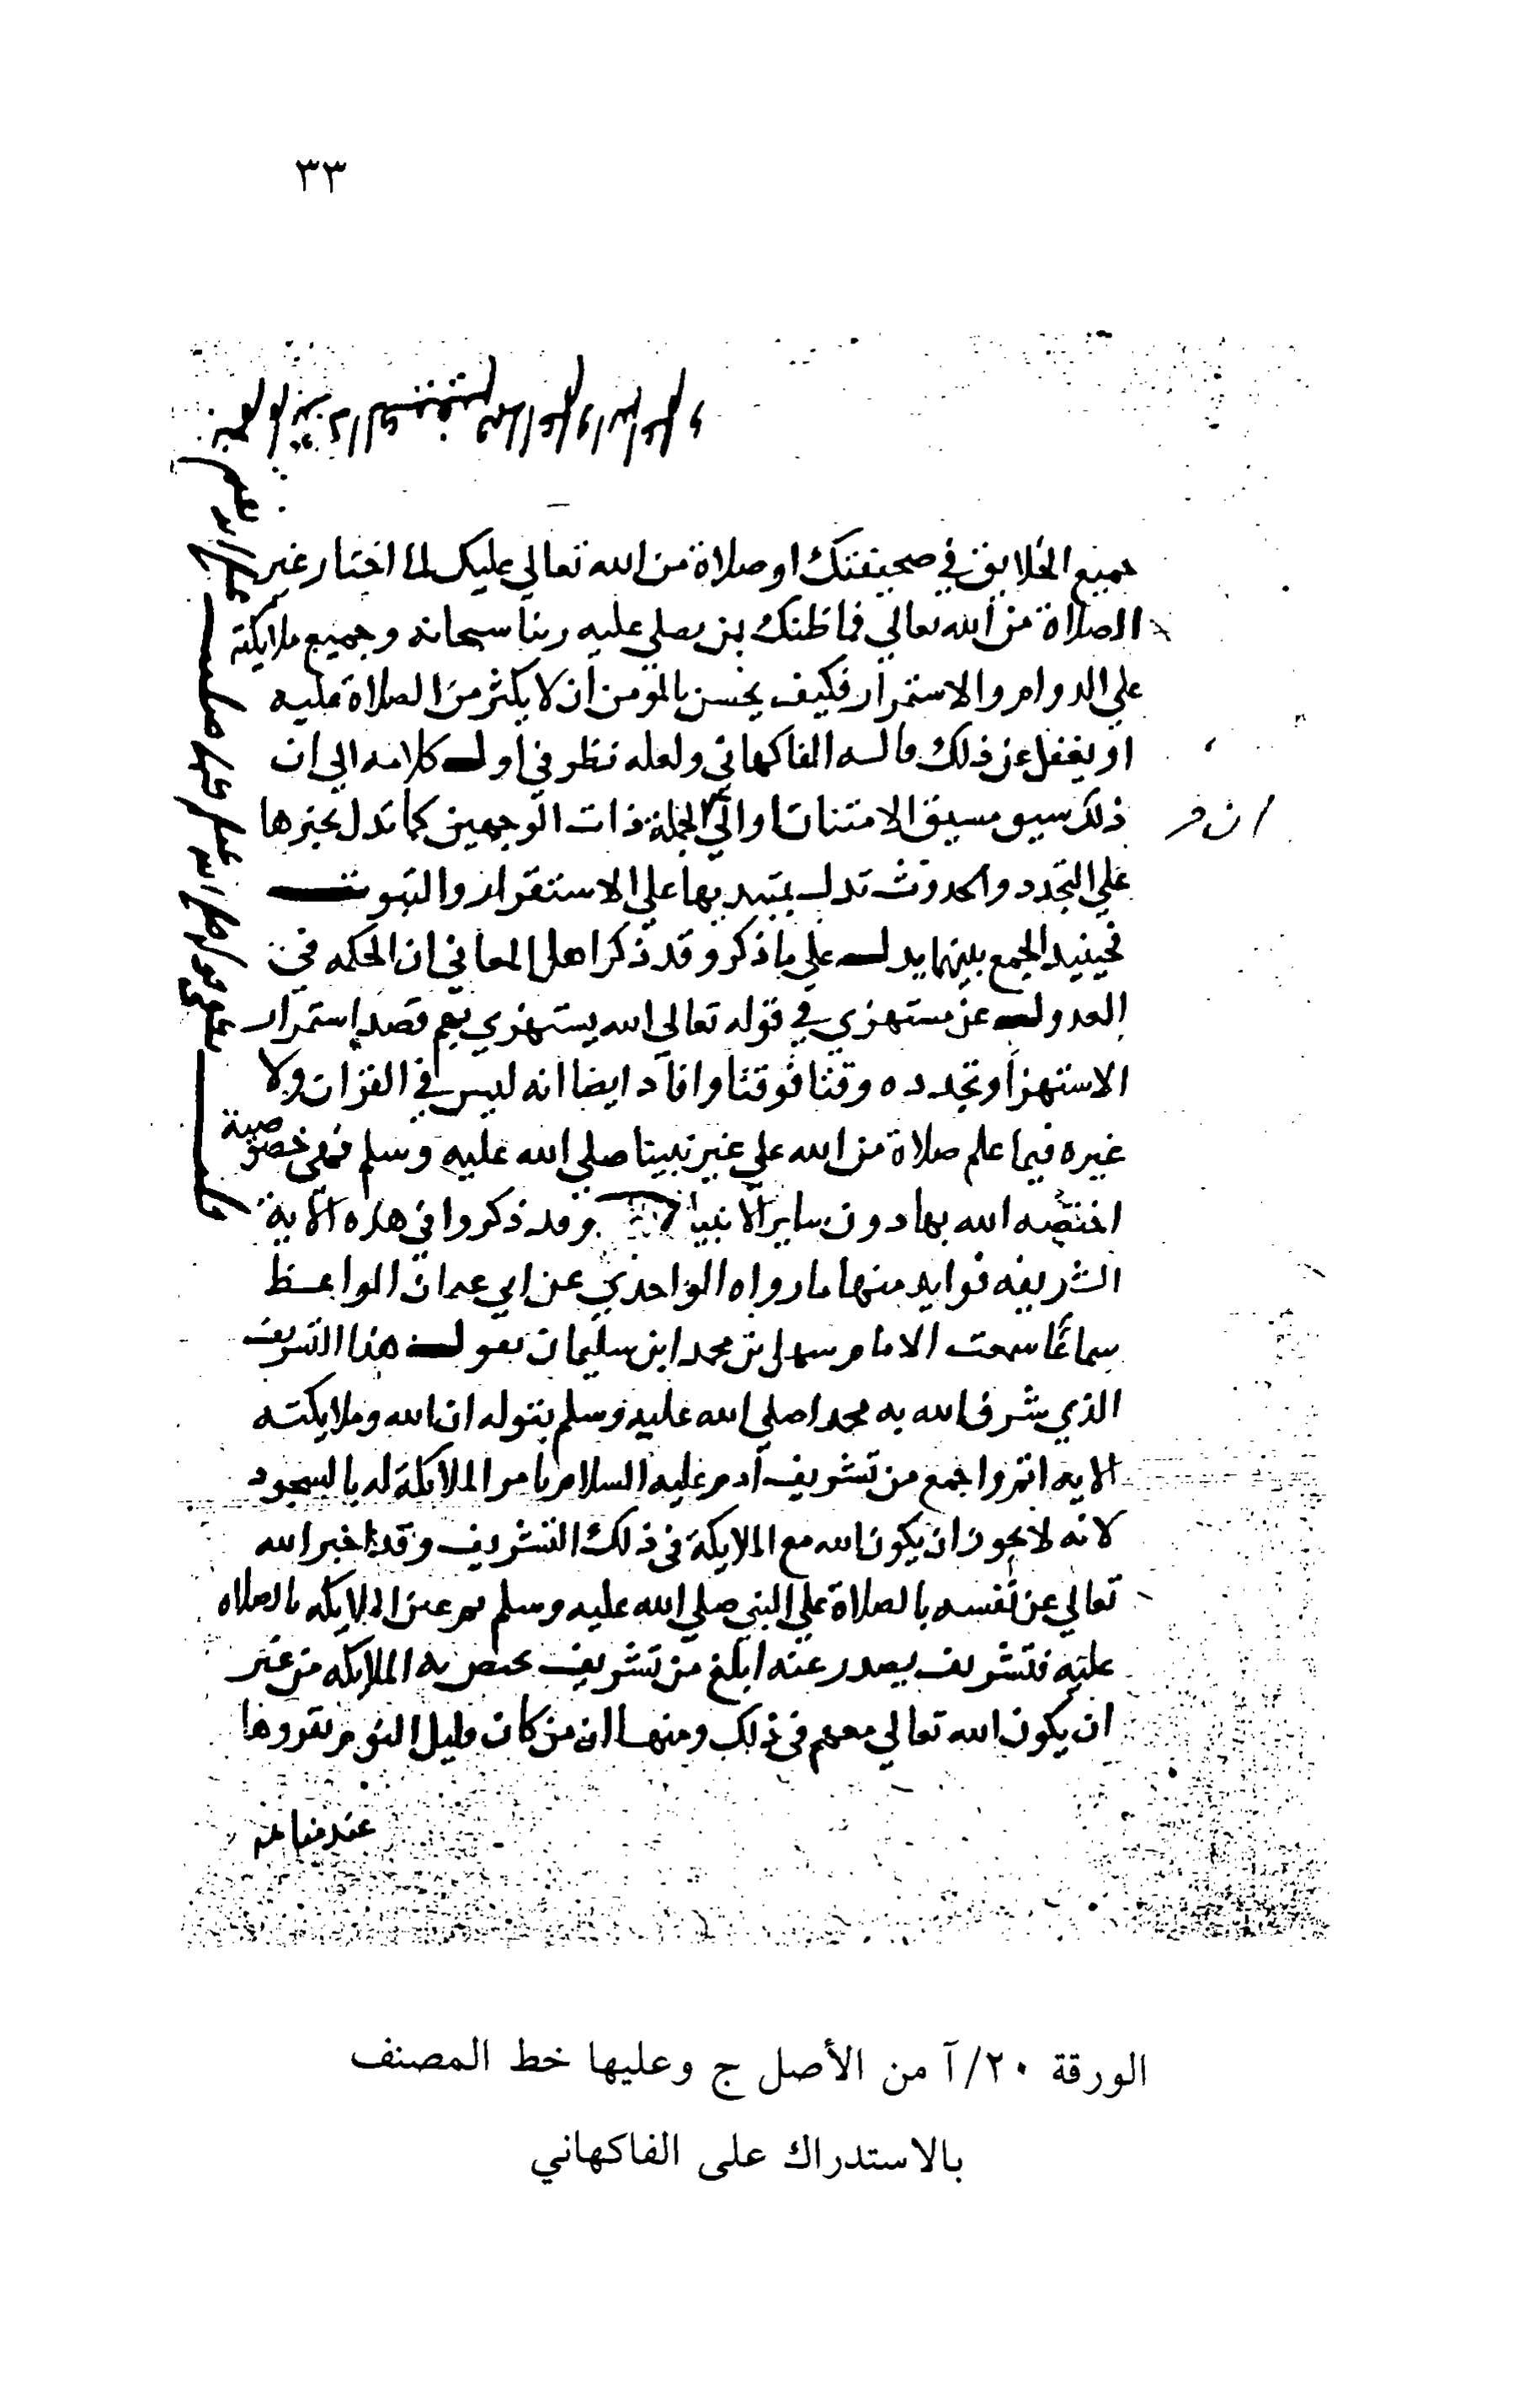 ٣٣
جميع الخلايق في صحيفتك او صلاة من الله تعالي عليك لما اختار غير
الصلاة من الله تعالي فما ظنك بمن يصلي عليه ربنا سبحانه وجميع ملايكته
علي الدوام والاستمرار فكيف يحسن بالمؤمن ان لا يكثر من الصلاة عليه
او يغفل عن ذلك قالــه الفاكهاني ولعله نظر في اول كلامه الي ان
ذلك سيق مسيق الامتنان والي الجملة ذات الوجهين كما تدل بخبرها
علي التجدد والحدوث تدل بمبتديها علي الاستقرار والثبوت
فحينيذ الجمع بينهما يدل علي ما ذكر وقد ذكر اهل المعاني ان الحكمه في
العدول عن مستهزي في قوله تعالي الله يستهزي بهم قصد استمرار
الاستهزا وتجدده وقتا فوقتا وافاد ايضا انه ليس في القران ولا
غيره فيما علم صلاة من الله علي غير نبينا صلي الله عليه وسلم فهي خصوصية
اختصه الله بها دون ساير الانبيا وقد ذكروا في هذه الاية
الشريفه فوايد منها ما رواه الواحدي عن ابي عثمان الواعظ
سماعا سمعت الامام سهل بن محمد ابن سليمان يقول هذا التشريف
الذي شرف الله به محمدا صلي الله عليه وسلم بقوله ان الله وملايكته
الايه اتم واجمع من تشريف آدم عليه السلام بامر الملايكة له بالسجود
لانه لا يجوز ان يكون الله مع الملايكة في ذلك التشريف وقد اخبر الله
تعالي عن نفسه بالصلاة علي النبي صلي الله عليه وسلم ثم عن الملايكه بالصلاه
عليه فتشريف يصدر عنه ابلغ من تشريف يختص به الملايكه من غير
ان يكون الله تعالي معهم في ذلك ومنها ان من كان قليل النوم يقروها
عند منامه
الورقة ٢٠/آ من الأصل ج وعليها خط المصنف
بالاستدراك على الفاكهاني